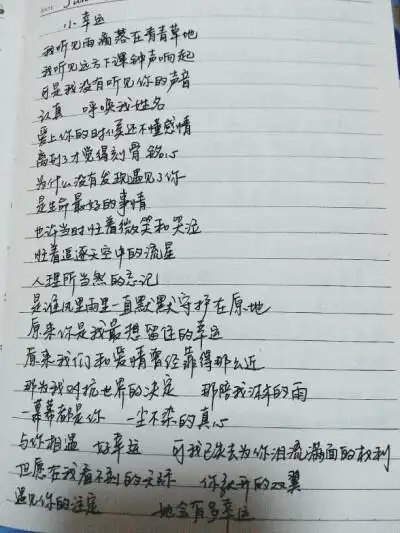 小幸运
我听见雨滴落在青青草地
我听见远方下课钟声响起
可是我没有听见你的声音
认真 呼唤我姓名
爱上你的时候还不懂感情
离别了才觉得刻骨铭心
为什么没有发现遇见了你
是生命最好的事情
也许当时忙着微笑和哭泣
忙着追逐天空中的流星
人理所当然的忘记
是谁风里雨里一直默默守护在原地
原来你是我最想留住的幸运
原来我们和爱情曾经靠得那么近
那为我对抗世界的决定 那陪我淋的雨
一幕幕都是你 一尘不染的真心
与你相遇 好幸运 可我已失去为你泪流满面的权利
但愿在我看不到的天际 你张开的双翼
遇见你的注定 她会有多幸运